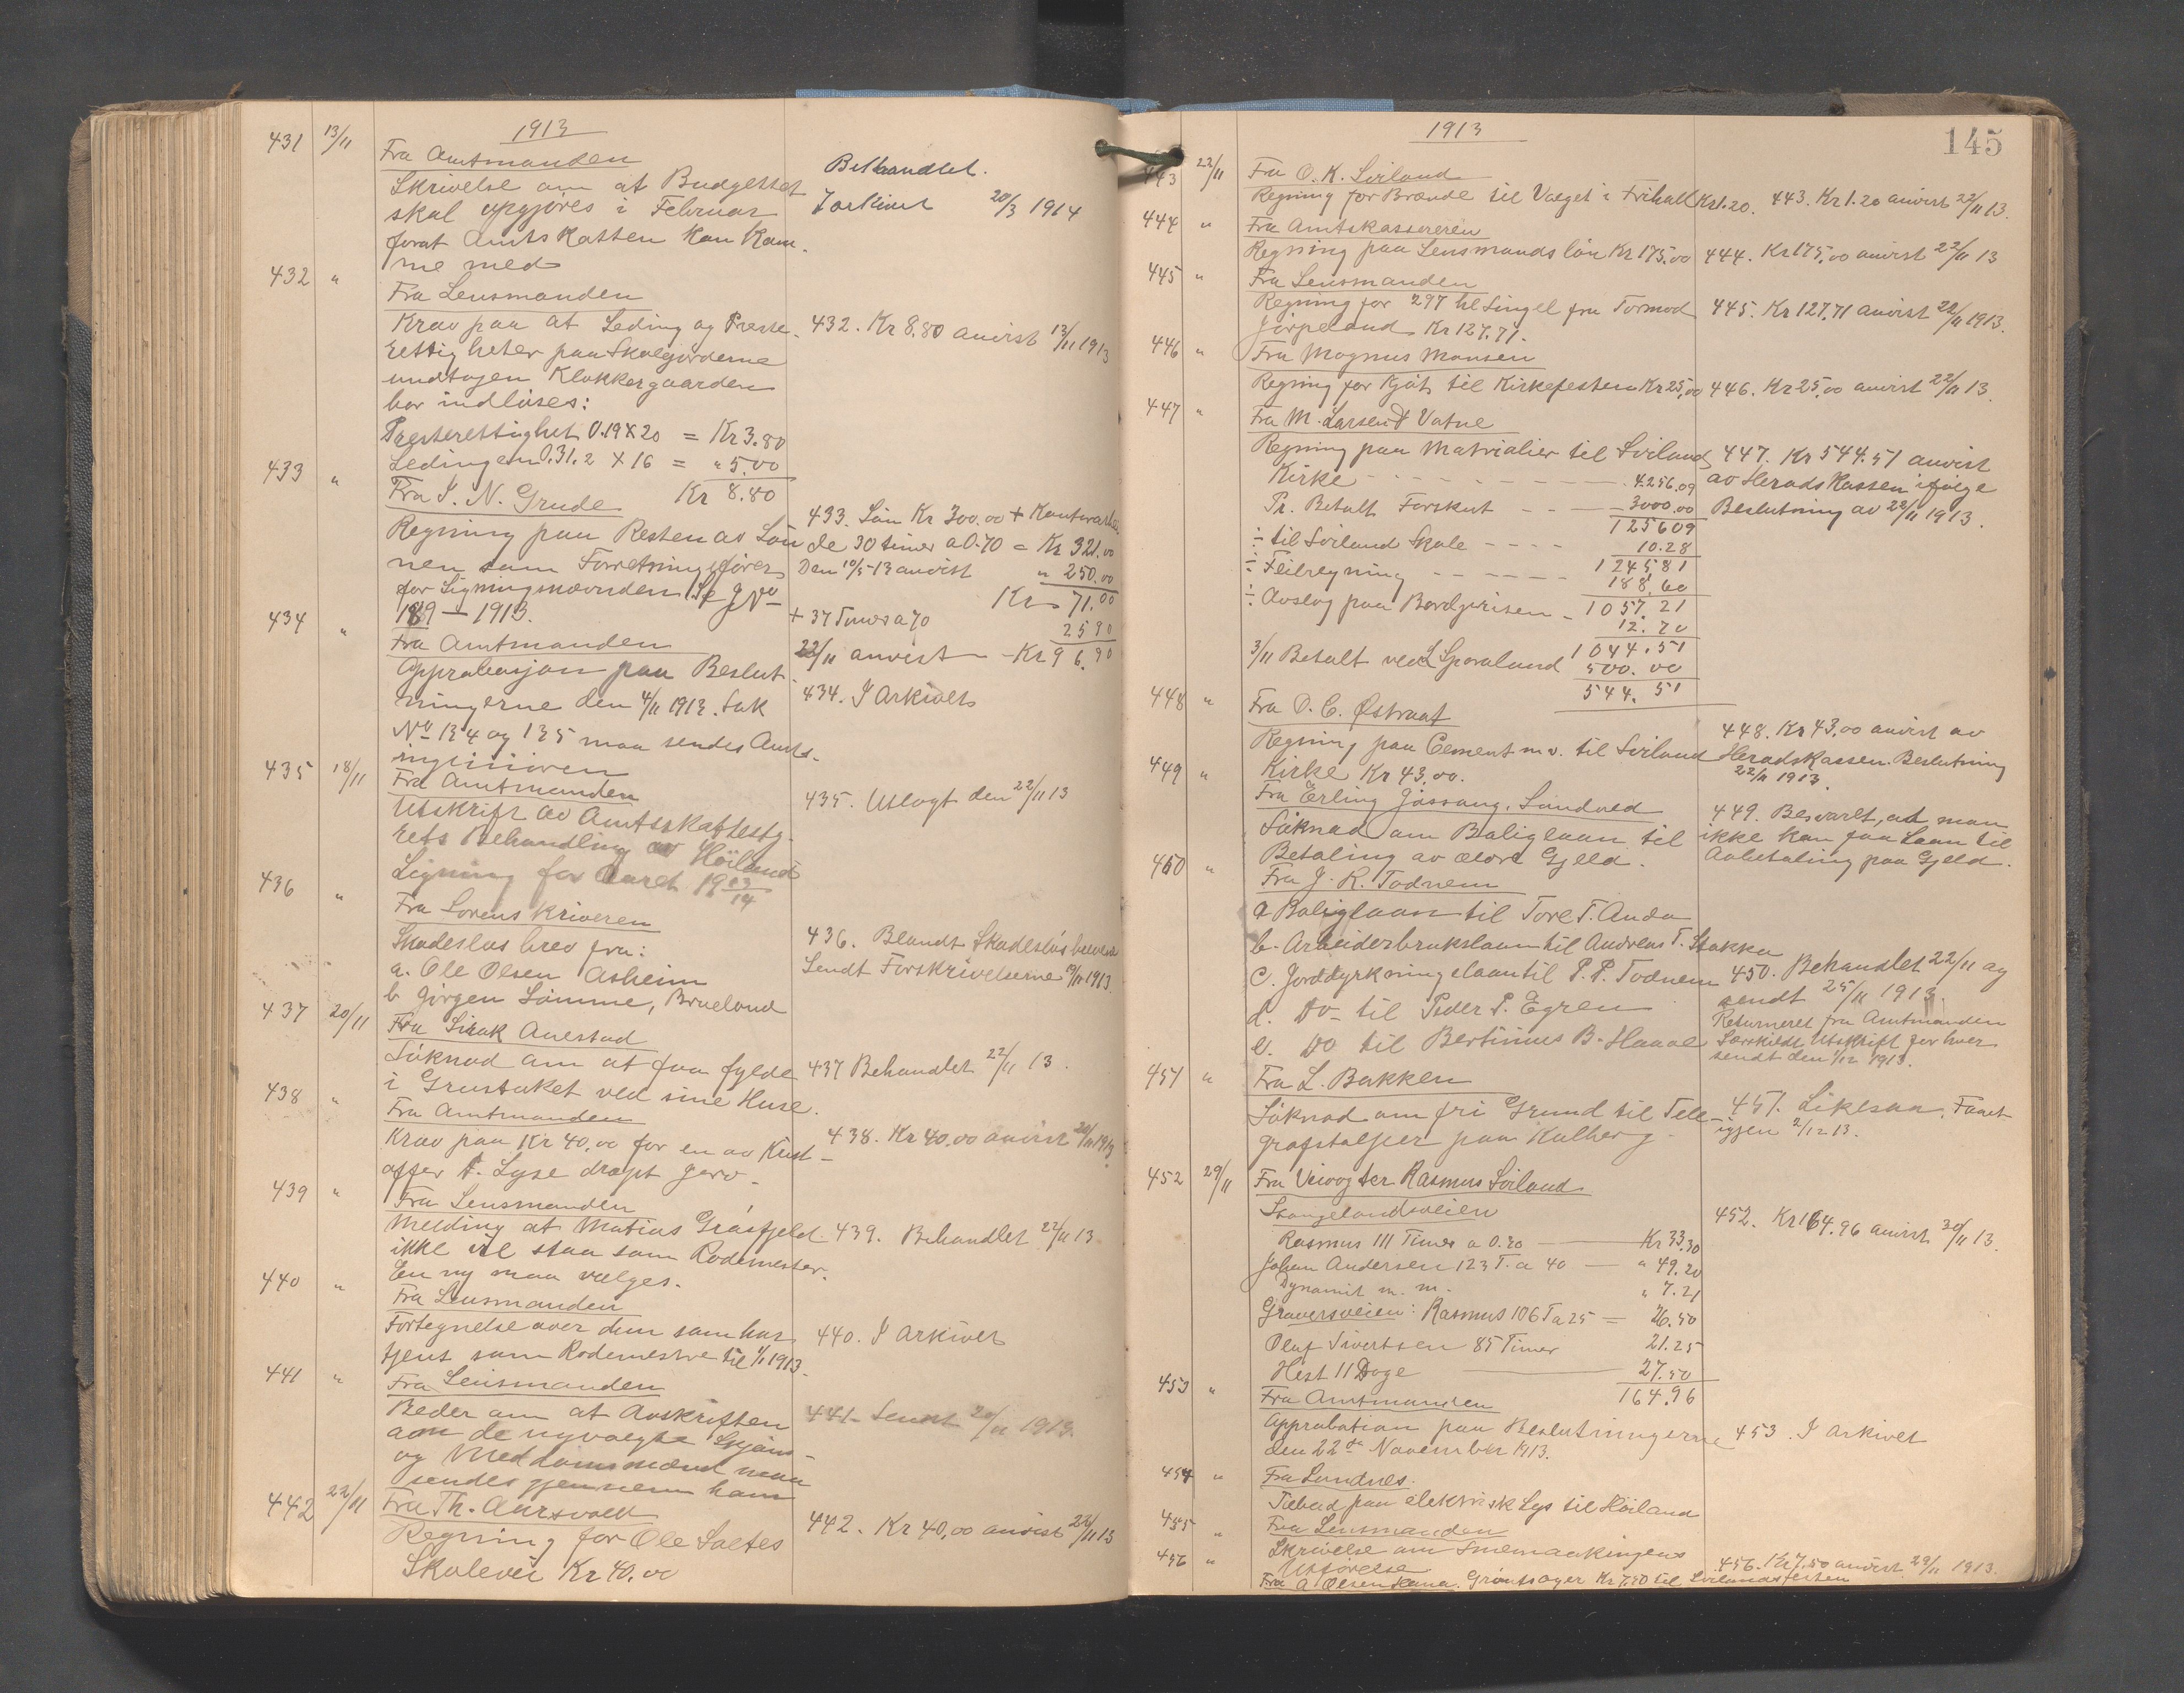 1913
431 13/11 Fra Amtmanden
Skrivelse om at Budgettet
skal opgjøres i Februar
forat Amtskatten kan kom-
me med
Behandlet.
I arkivet 20/3 1914
432 " Fra Lensmanden
Krav paa at Leding og Preste-
rettigheter paa Skolegorderne
undtagen Klokkergaarden
bør indløses:
Presterettighet 0.19 x 20 = Kr 3.80
Ledingen 0.31.2 x 16 = " 5.00
Kr 8.80
432. Kr 8.80 anvist 13/11 1913
433 " Fra S. N. Grude
Regning paa Resten av Løn
nen som Forretningsfører
for Ligningsnævnden. Se J No
189 — 1913.
433. Løn Kr 300.00 + Kontorarbei-
de 30 timer a 0.70 = Kr 321.00
Den 10/5 13 anvist " 250.00
Kr 71.00
+ 37 Timer a 70 25 90
22/11 anvist — Kr 96.90
434 " Fra Amtmanden
Approbasjon paa Beslut-
ningerne den 4/11 1913. Sak
No 134 og 135 maa sendes Amts-
ingeniøren
434. I Arkivet
435 18/11 Fra Amtmanden
Utskrift av Amtsskattesty-
rets Behandling av Høilands
Ligning for Aaret 1913/14
435. Utlagt den 22/11 13
436 " Fra Sorenskriveren
Skadesløsbrev fra:
a. Ole Olsen Asheim
b Jørgen Sømme, Brueland
436. Blandt Skadesløsbrevene
Sendt Forskrivelserne /11 1913
437 20/11 Fra Sirak Auestad
Søknad om at faa fylde
i Grustaket ved sine Huse.
437 Behandlet 22/11 13.
438 " Fra Amtmanden
Krav paa Kr 40,00 for en av Krist-
offer T. Lyse dræpt Jerv-
438. Kr 40,00 anvist 20/11 1913
439 " Fra Lensmanden
Melding at Matias Gråsfjeld
ikke vil staa som Rodemester.
En ny maa vælges.
439. Behandlet 22/11 13
440 " Fra Lensmanden
Fortegnelse over dem som har
tjent som Rodemestre til 1/1 1913.
440. I arkivet
441 " Fra Lensmanden
Beder om at Avskriften
om de nyvalgte Skjøns-
og Meddomsmænd maa
sendes gjennem ham
441. Sendt 20/11 1913.
442 22/11 Fra Th. Aursvold
Regning for Ole Saltes
Skolevei Kr 40.00
442. Kr 40,00 anvist 22/11 13
1913
145
443 22/11 Fra O. K. Søiland
Regning for Brænde til Valget i Frihall Kr 1.20. 443. Kr 1.20 anvist 22/11 13.
444 " Fra Amtskassereren
Regning paa Lensmandsløn Kr 175.00 444. Kr 175,00 anvist 22/11 13
445 " Fra Lensmanden
Regning for 297 hl Singel fra Tormod
Jørpeland Kr 127.71.
445. Kr 127,71 anvist 22/11 1913.
446 " Fra Magnus Monsen
Regning for Kjøt til Kirkefesten Kr 25,00 446. Kr 25,00 anvist 22/11 13.
447 " Fra M. Larsen & Vatne
Regning paa Matrialier til Søiland
Kirke - - - - - 4256.09
Pr. Betalt Forskut - - - 3000.00
125609
÷ til Søiland Skole - - - - 10.28
124581
÷ Feilregning - - - - - 188.60
÷ Avslag paa Bordprisen - 1057.21
12.70
1044.51
3/11 Betalt ved Sporaland 500.00
544.51
447. Kr 544.51 anvist
av Heradskassen ifølge
Beslutning av 22/11 1913.
448 " Fra O. C. Østraat
Regning paa Cement m.v. til Søiland
Kirke Kr 43.00.
448. Kr 43,00 anvist av
Heradskassen. Beslutning
22/11 1913.
449 " Fra Erling Jåssang, Sandved
Søknad om Boliglaan til
Betaling av ældre Gjeld.
449. Besvarlt, at man
ikke kan faa Laan til
Avbetaling paa Gjeld.
450 " Fra J. K. Todnem
a Boliglaan til Tore T. Anda
b. Arbeiderbrukslaan til Andreas T. Stokka
c. Jorddyrkningslaan til P. P. Todnem
d. Do til Peder P. Egren
e. Do til Bertinius B. Haave
450. Behandlet 22/11 og
sendt 25/11 1913.
Returneret fra Amtmanden
Særskildt Utskrift for hver
sendt den 1/12 1913.
451 " Fra L. Bakken
Søknad om fri Grund til Tele-
grafstolper paa Kolberg.
451. Likesaa. Faaet
igjen 2/12 13.
452 29/11 Fra Veivogter Rasmus Søiland
Stangelandsveien
Rasmus 111 Timer a 0.30 — Kr 33.30
Johan Andersen 123 T. a 40 — " 49.20
Dynamit m. m. " 7.21
Graversveien: Rasmus 106 T a 25 = 26.50
Oluf Sivertsen 85 Timer 21.25
Hest 11 Dage — 27.50
164.96
452. Kr 164.96 anvist 30/11 13.
453 " Fra Amtmanden
Approbation paa Beslutningerne
den 22de November 1913.
453. I arkivet
454 " Fra Sandnes.
Tilbud paa elektrisk Lys til Høiland
455 " Fra Lensmanden
Skrivelse om Snemaakingens
Utførelse
456 " Fra A Olsen Hana. Grøntsager Kr 7.50 til Søilandsfesten
456. Kr 7.50 anvist 29/11 1913.